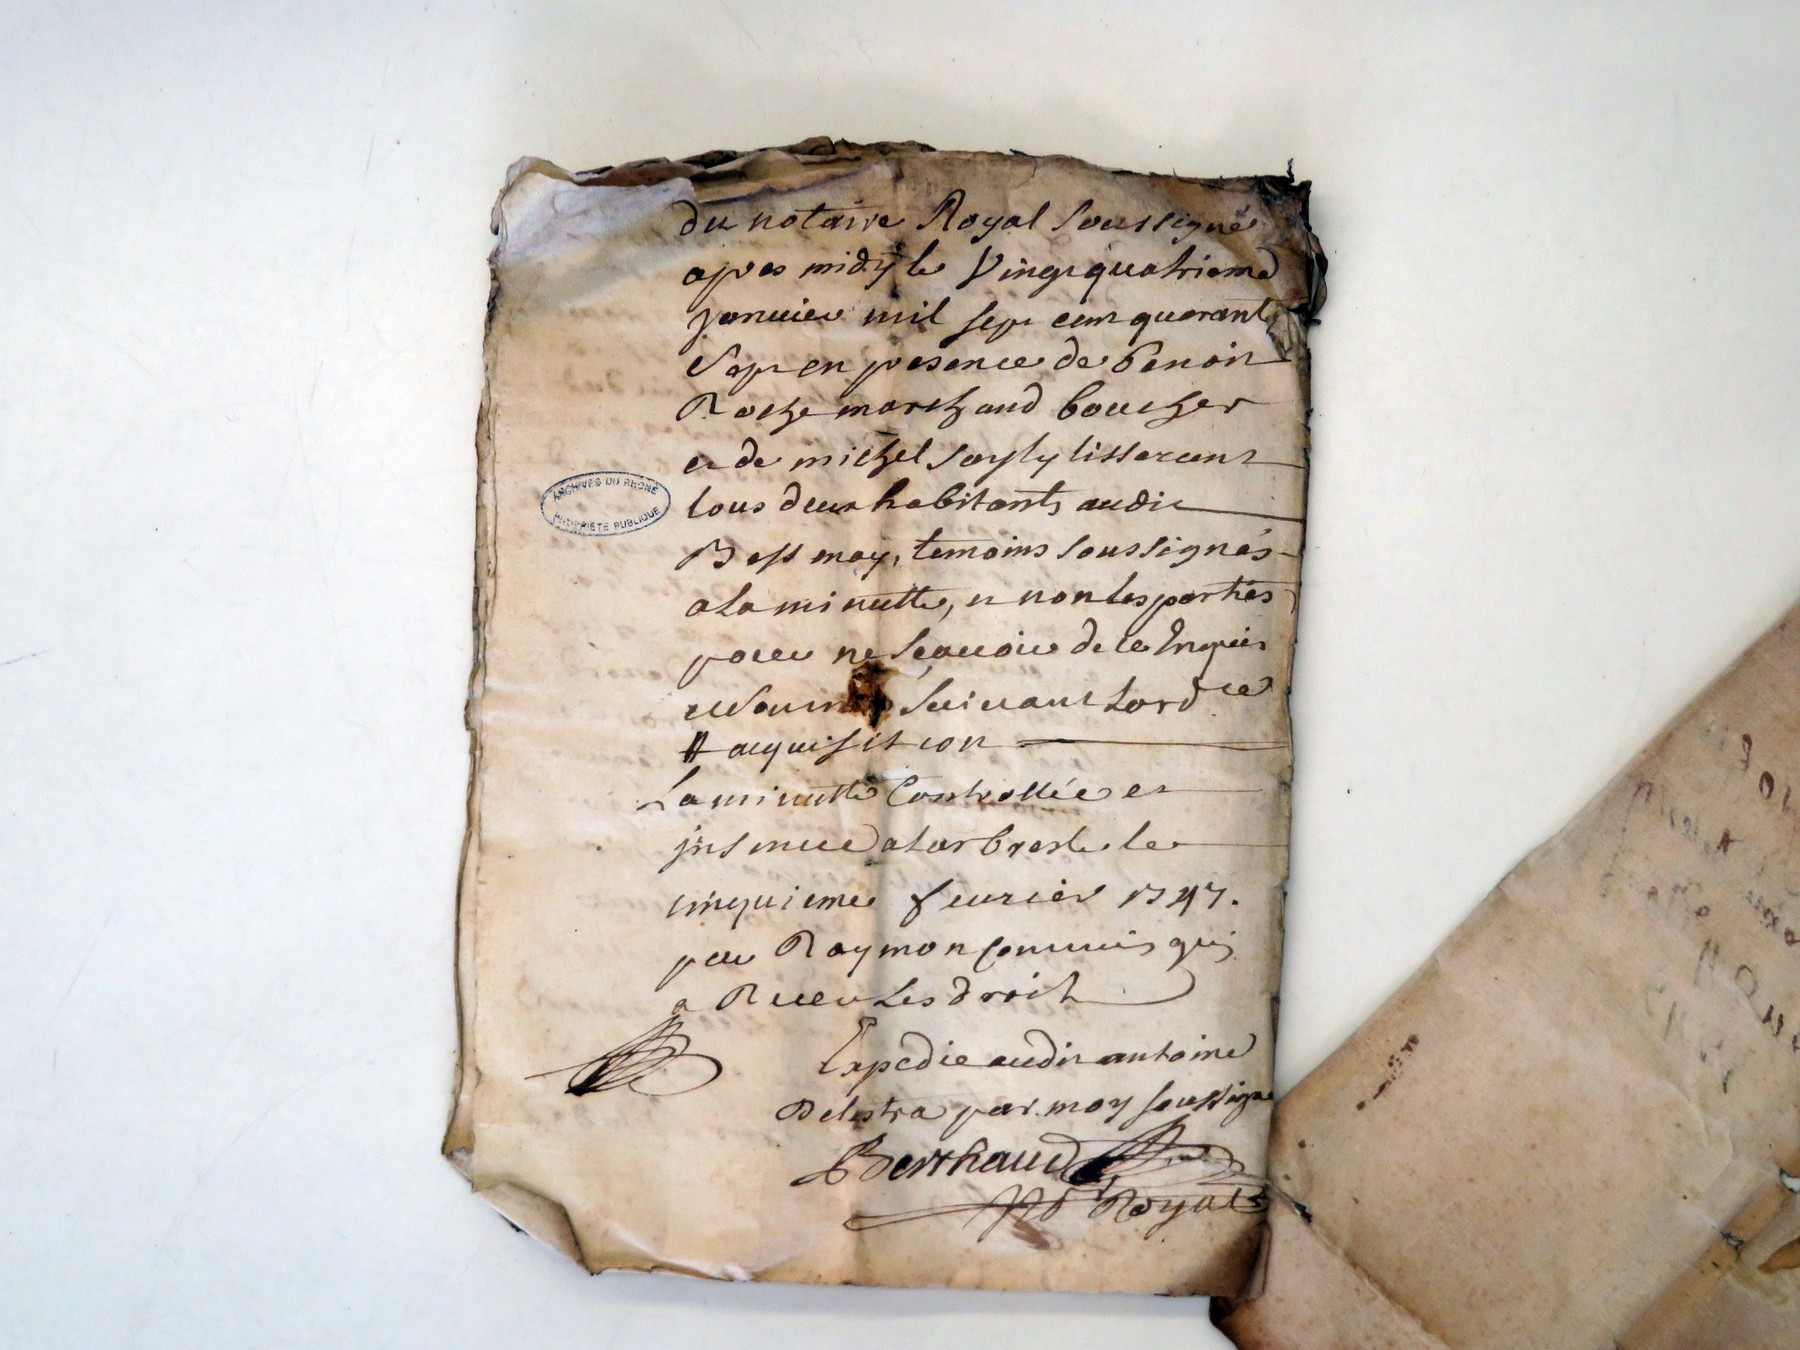 du notaire Royal soussigné
apres midy le Vingt quatrieme
Janvier mil sept cent quarante
Sept en presence de Benoit
Roche marchand boucher
et de michel tisserant
tous deux habitants audit
Bessenay, temoins soussignés
a la minutte, et non les parties
pour ne scavoir de ce Enquis
suivant Lord ce
# acquisition
La minutte Controllée et
insinuee a Larbresle le
cinquieme fevrier 1747.
par Raymon Commis qui
a Receu Les droits
Expedie audit antoine
Delestra par moy soussigne
Berthaud
Nre Royal
ARCHIVES DU RHONE
PROPRIETE PUBLIQUE